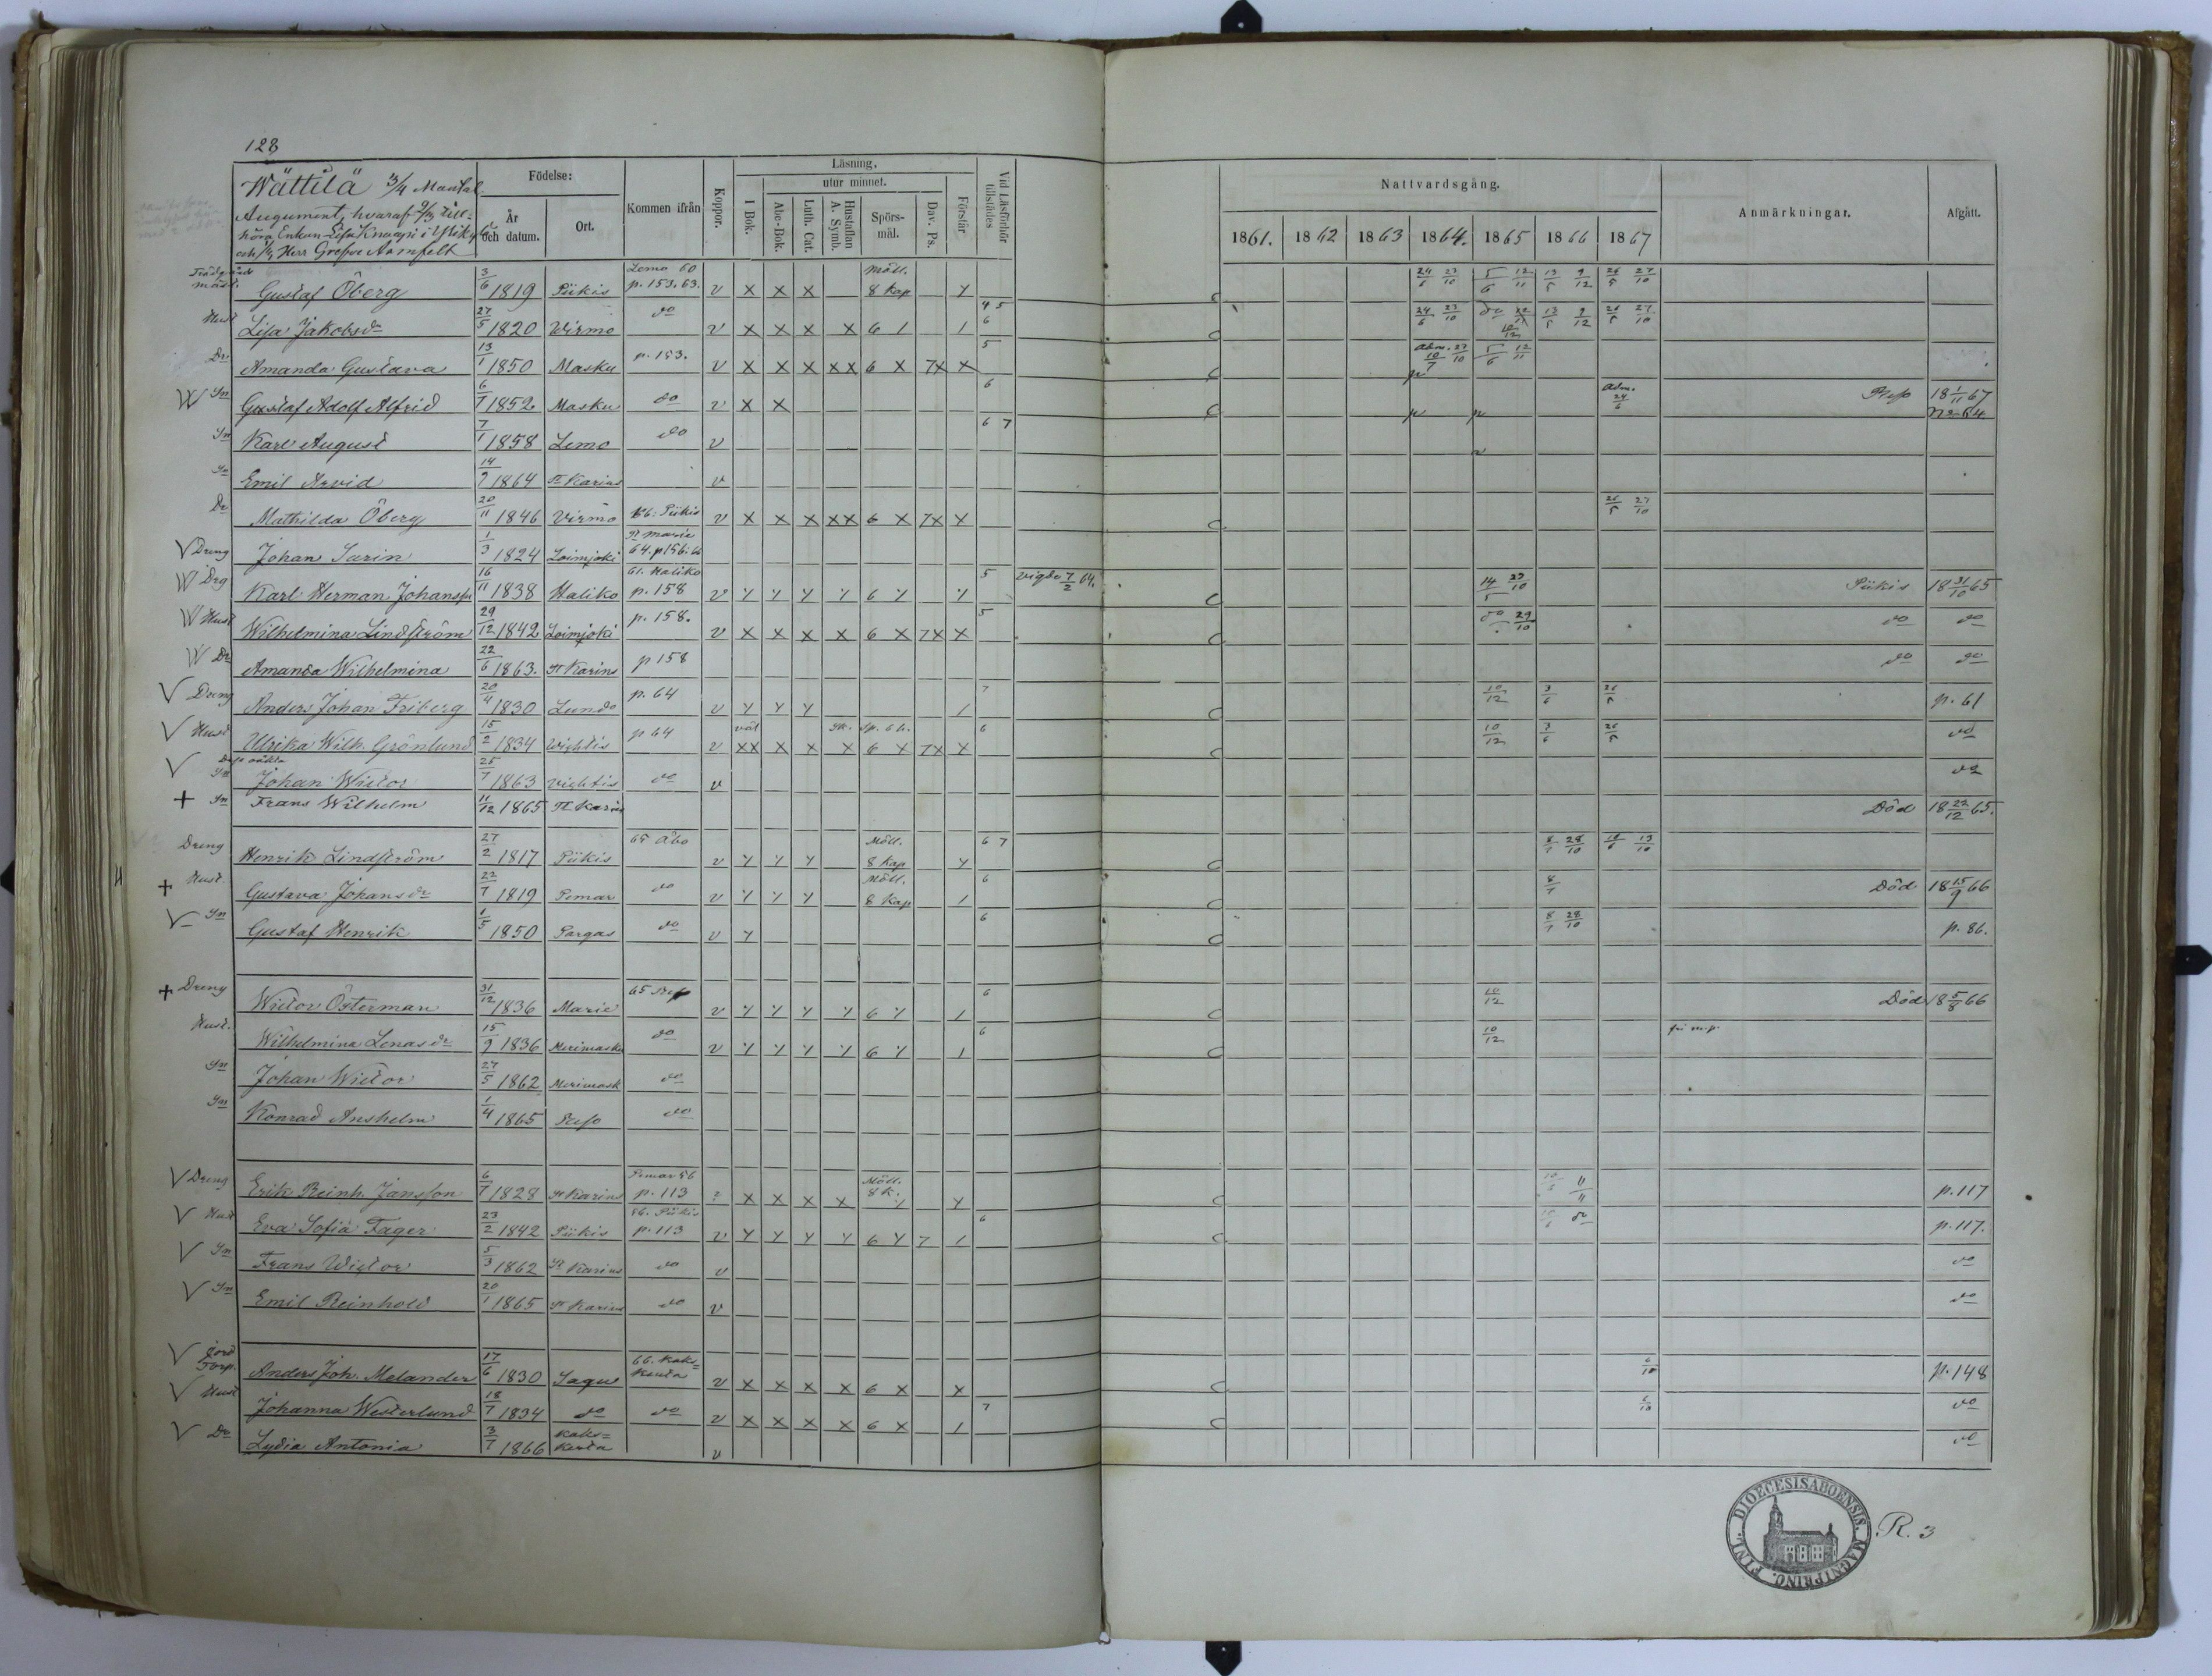 128
Wättilä 3/4 Mantal
Augument, hvaraf 2/3 till-
höra Enkan Lisa
och 1/3 Herr Grefve Aarmfelt
Födelse:
År och datum.
Ort.
Kommen ifrån
Koppor.
Läsning.
I Bok.
utur minnet.
Abc-Bok.
Luth. Cat.
Hustaflan A. Symb.
Spörs-mål.
Dav. Ps.
Förstår
Vid Läsförhör tillstädes
Nattvardsgång.
1861. 1862 1863 1864. 1865 1866 1867
Anmärkningar.
Afgått.
Gustaf Öberg 3/6 1819 Piikis Lemo 60 p. 153. 63. v x x x Möll. 8 Kap y 24/6 23/10 5/6 12/11 13/5 9/12 26/5 27/10
Hust Lisa Jakobsdr 27/5 1820 Wirmo do v x x x x 6 / / 4 5 6 24/6 23/10 do 13/5 9/12 26/5 27/10
Dr Amanda Gustava 13/1 1850 Masku p. 153. v x x x xx 6 x 7x x 5 adm. 10/7 23/10 5/6 12/11
Sn Gustaf Adolf Alfrid 6/7 1852 Masku do v x x 6 adm. 24/6 18 1/11 67 no 64
Sn Karl August 7/1 1858 Lemo do v 6 7
Sn Emil Arvid 14/9 1864 St Karins v
Dr Mathilda Öberg 20/11 1846 Virmo 66: Piikis v x x x xx 6 x 7x x 26/5 27/10
V Dreng Johan Sarin 1/3 1824 Loimjoki St Marie 64. p 156.
Drg Karl Herman Johansson 16/11 1838 Haliko 61. Haliko p. 158 v y y y y 6 y y 5 vigde 7/2 64. 14/5 29/10 Piikis 18 31/10 65
Hust Wilhelmina Lindström 29/12 1842 Loimjoki p. 158. v x x x x 6 x 7x x 5 do 29/10 do do
Dr Amanda Wilhelmina 22/6 1863. St Karins p 158 do do
V Dreng Anders Johan Friberg 20/11 1830 Lundo p. 64 v y y y / 7 10/12 3/6 26/5 p. 61
V Hust Ulrika Wilh. Grönlund 15/2 1834 Wichtis p 64 v xx x x x 6 x 7x x 6 10/12 3/6 26/5 do
V Sn Johan Wictor 25/7 1863 Vichtis do v do
+ Sn Frans Wilhelm 11/12 1865 St Karins Död 18 22/12 65.
Dreng Henrik Lindström 27/2 1817 Piikis 65 Åbo v y y y Möll. 8 Kap y 6 7 8/7 28/10 13/10
+ Hust. Gustava Johansdr 22/7 1819 Pemar do v y y y Möll. 8 Kap / 6 8/7 Död 18 15/9 66
V Sn Gustaf Henrik 1/5 1850 Pargas do v y 6 8/7 28/10 p. 86.
+ Dreng Wictor Österman 31/12 1836 Marie 65 v y y y y 6 y / 6 10/12 Död 18 5/8 66
Hust. Wilhelmina Lenasdr 15/9 1836 Merimasku do v y y y y 6 y / 6 10/12
Sn Johan Wictor 27/5 1862 Merimask do
Sn Konrad Anshelm 1/4 1865 do
V Dreng Erik Reinh. Jansson 6/7 1828 St Karins Pemar 56 p. 113 v x x x x Möll. 8 K. y p. 117
V Hust Eva Sofia Fager 23/2 1842 Piikis 56. Piikis p. 113 v y y y y 6 y 7 / 6 do p. 117.
V Sn Frans Wictor 5/3 1862 St Karins do v do
V Sn Emil Reinhold 20/1 1865 St Karins do v do
V Torp. Anders Joh. Melander 17/6 1830 Sagu 66. Kaks=kerta v x x x x 6 x x 6/10 p. 148
V Hust Johanna Westerlund 18/7 1834 do do v x x x x 6 x / 7 6/10 do
V Dr Lydia Antonia 3/7 1866 Kaks=kerta v do
DIOECESIS ABOENSIS. MAGNI PRINC. FINL.
R. 3